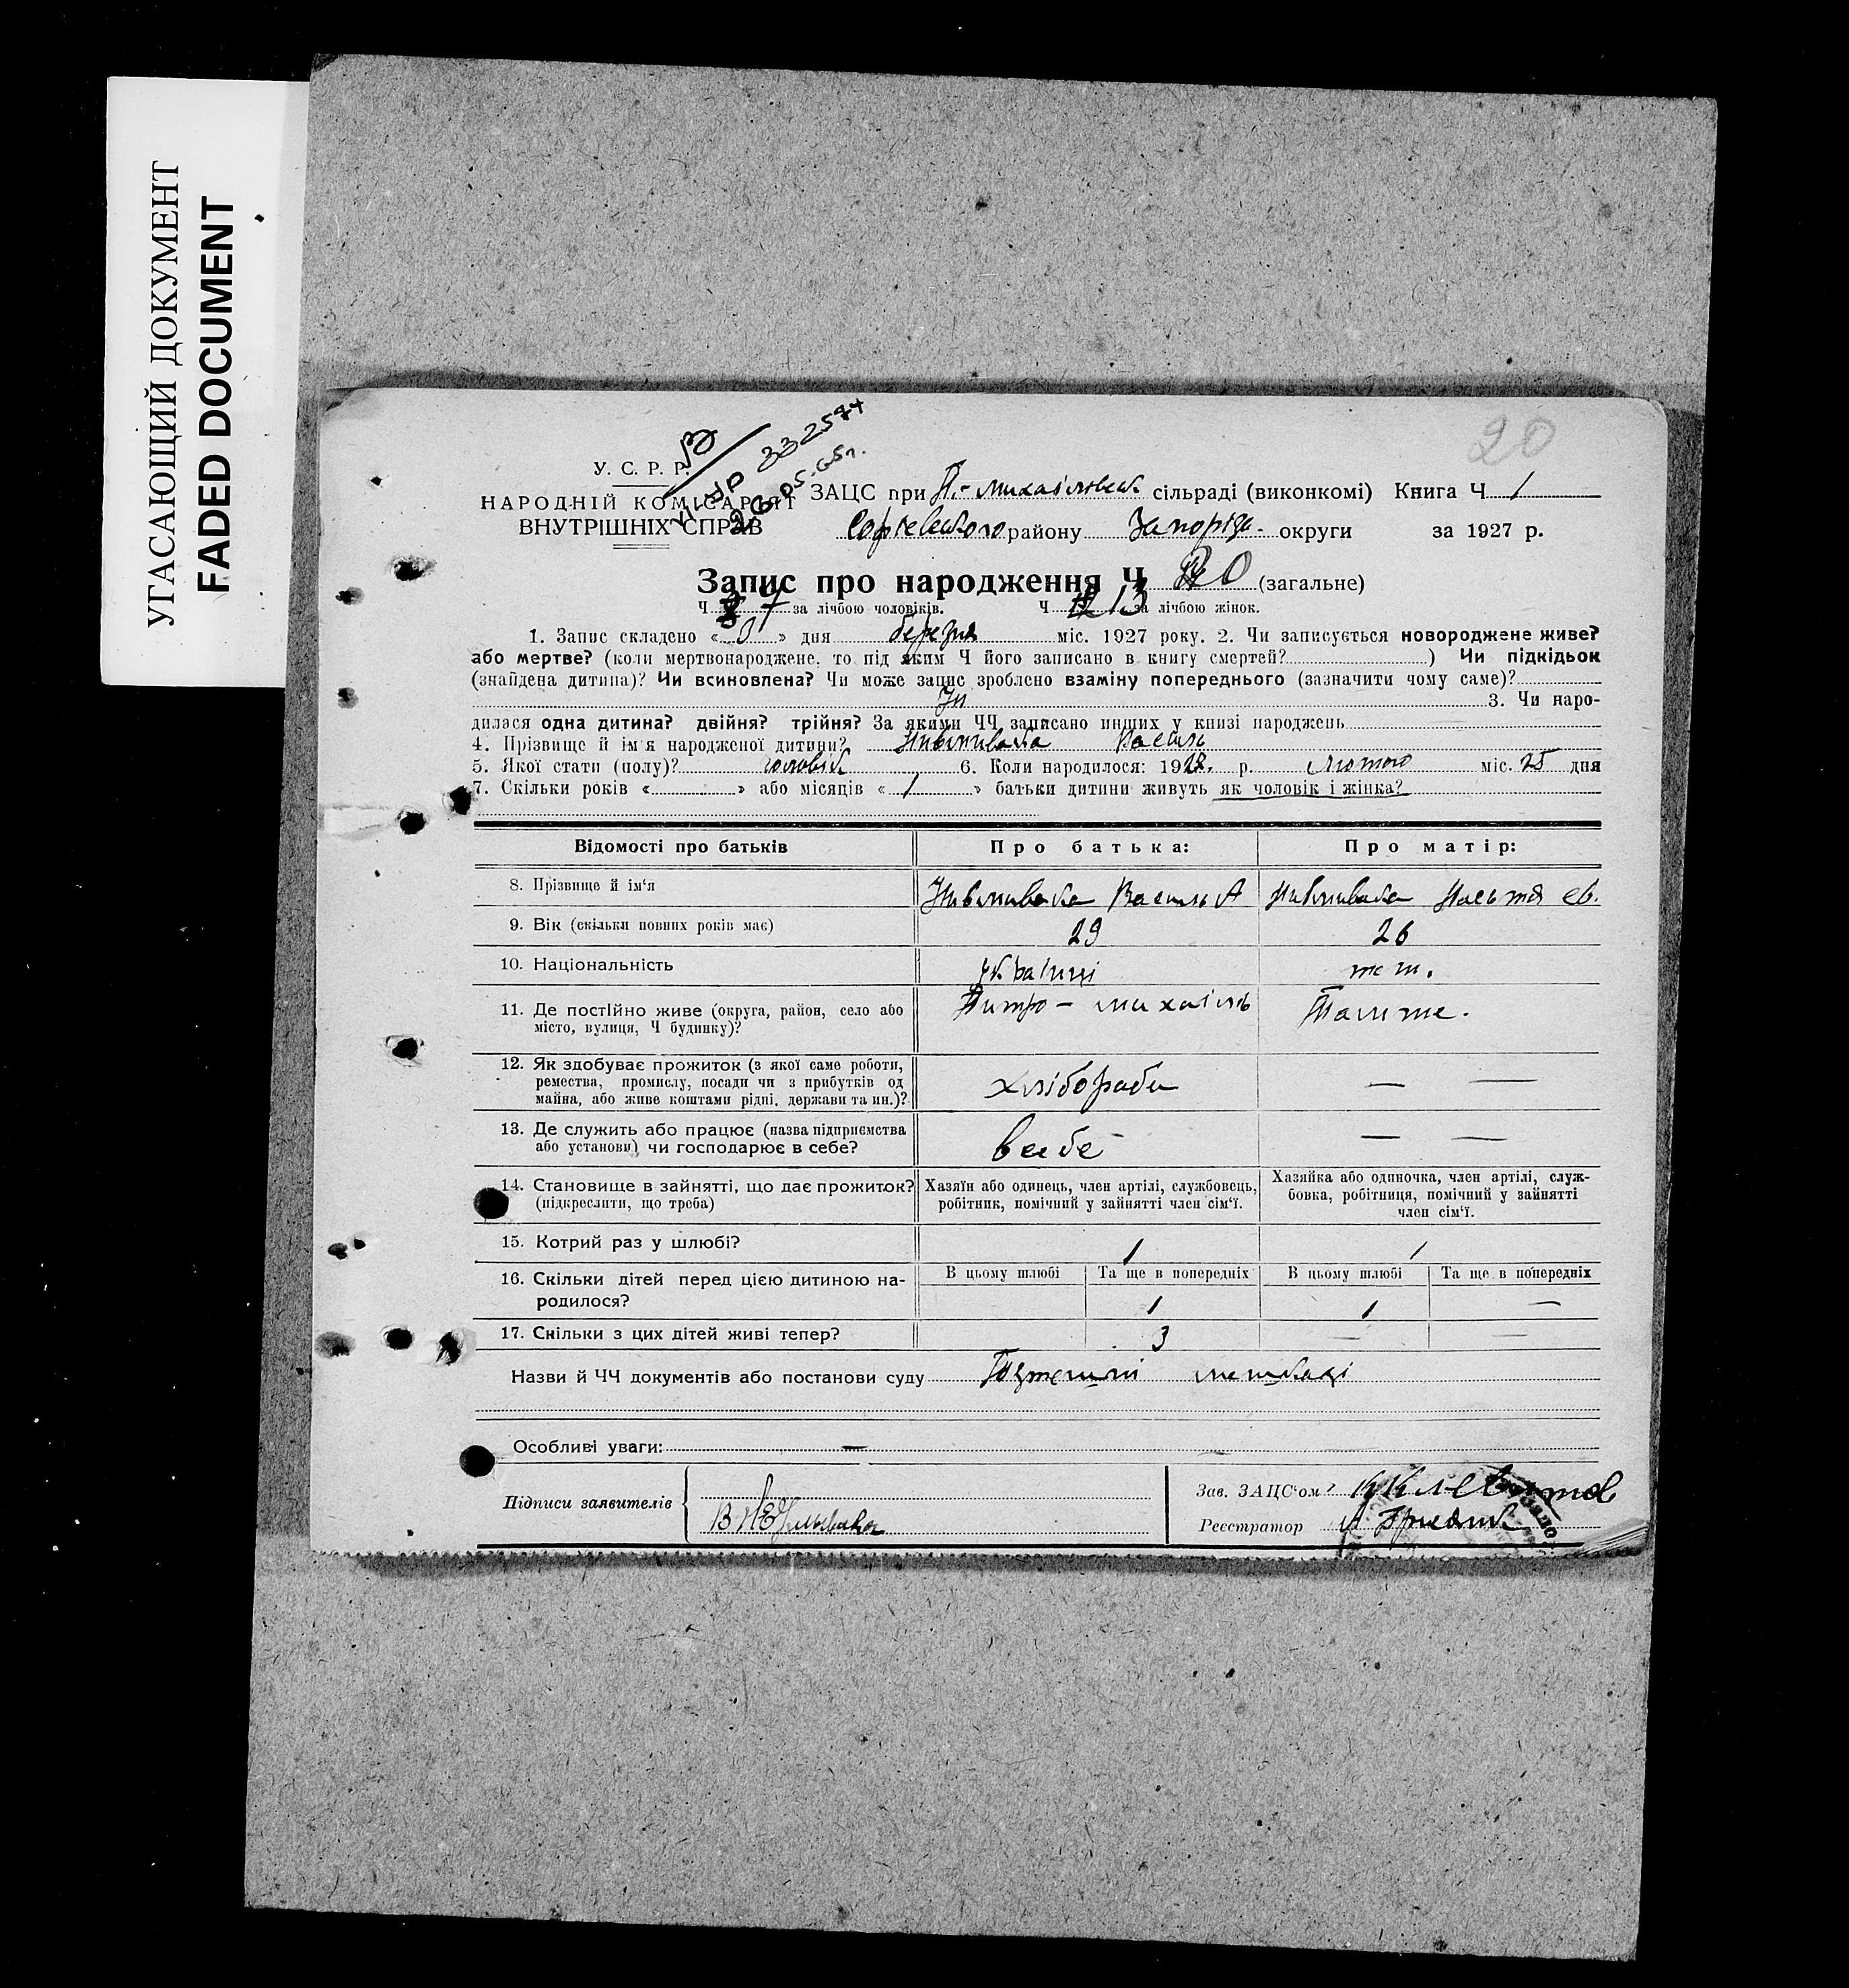 УГАСАЮЩИЙ ДОКУМЕНТ
FADED DOCUMENT
20
У. С. Р. Р.
НАРОДНІЙ КОМІСАРІЯТ
ВНУТРІШНІХ СПРАВ
332574
ЗАЦС при П.-Михайловськ сільраді (виконкомі) Книга Ч 1
Софієвського району Запорізь. округи за 1927 р.
Запис про народження Ч 20 (загальне)
Ч 7 за лічбою чоловіків. Ч 13 за лічбою жінок.
1. Запис складено « » дня березня міс. 1927 року. 2. Чи записується новороджене живе?
або мертве? (коли мертвонароджене, то під яким Ч його записано в книгу смертей? ) Чи підкідьок
(знайдена дитина)? Чи всиновлена? Чи може запис зроблено взаміну попереднього (зазначити чому саме)?
3. Чи наро-
дилася одна дитина? двійня? трійня? За якими ЧЧ записано инших у книзі народжень
4. Прізвище й ім'я народженої дитини? Василь
5. Якої стати (полу)? чоловік 6. Коли народилося: 1928. р. лютого міс. 25 дня
7. Скільки років « » або місяців « 1 » батьки дитини живуть як чоловік і жінка?
Відомості про батьків Про батька: Про матір:
8. Прізвище й ім'я Василь А Настя Єв.
9. Вік (скільки повних років має) 29 26
10. Національність українці теж.
11. Де постійно живе (округа, район, село або Питро-михаіль Тамже.
місто, вулиця, Ч будинку)?
12. Як здобуває прожиток (з якої саме роботи, хлібороби — —
ремества, промислу, посади чи з прибутків од
майна, або живе коштами рідні, держави та ин.)?
13. Де служить або працює (назва підприємства в себе — —
або установи) чи господарює в себе?
14. Становище в зайнятті, що дає прожиток? Хазяїн або одинець, член артілі, службовець, Хазяйка або одиночка, член артілі, служ-
(підкреслити, що треба) робітник, помічний у зайнятті член сім'ї. бовка, робітниця, помічний у зайнятті
член сім'ї.
15. Котрий раз у шлюбі? 1 1
16. Скільки дітей перед цією дитиною на- В цьому шлюбі Та ще в попередніх В цьому шлюбі Та ще в попередніх
родилося? 1 1 —
17. Скільки з цих дітей живі тепер? 3 — —
Назви й ЧЧ документів або постанови суду
Особливі уваги: —
Підписи заявителів
Зав. ЗАЦС'ом
Реєстратор